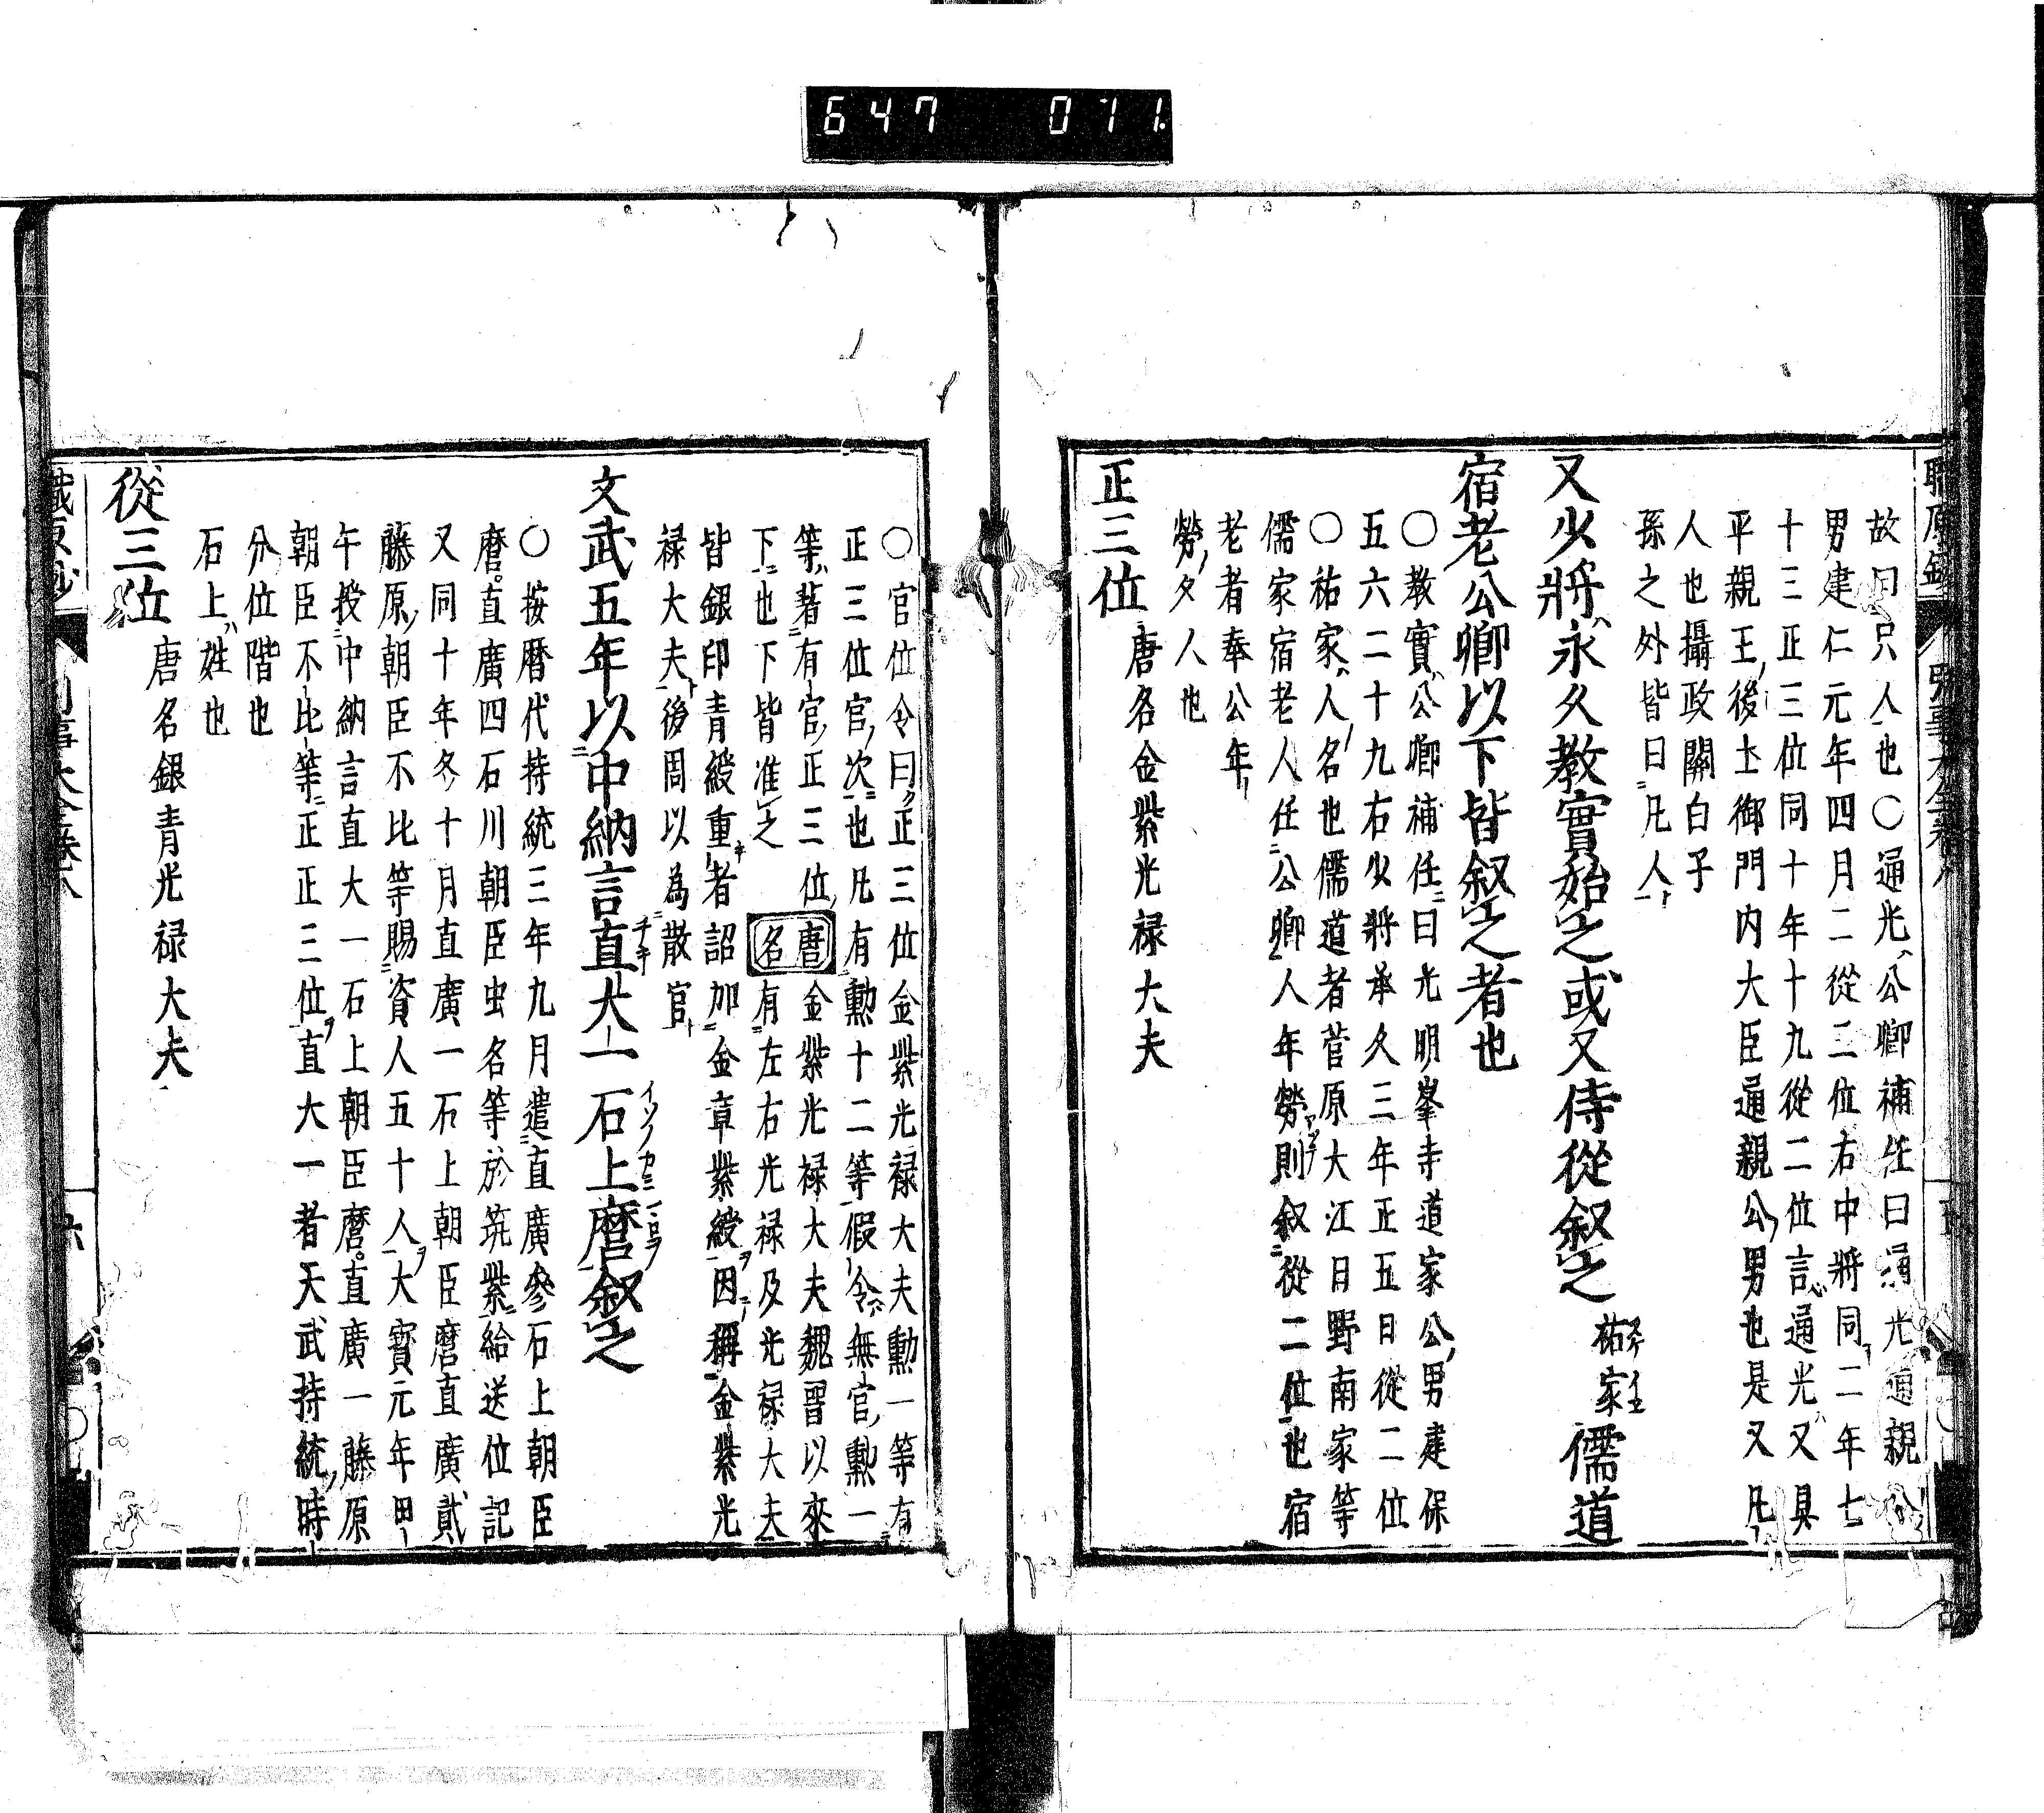 647 071
故曰只人也〇通光公卿補任曰通光通親公
男建仁元年四月二從三位右中將同二年七
十三正三位同十年十九從二位言通光又具
平親王後土御門内大臣通親公男也是又凡
人也攝政關白子
孫之外皆曰凡人
又少將永久教實始之或又侍從叙之祐家儒道
宿老公卿以下皆叙之者也
〇教實公卿補任曰光明峯寺道家公男建保
五六二十九右少將承久三年正五日從二位
〇祐家人名也儒道者菅原大江日野南家等
儒家宿老人任公卿人年勞則叙從二位也宿
老者奉公年
勞夕人也
正三位唐名金紫光禄大夫
〇官位令曰正三位金紫光禄大夫勳一等有
正三位官次也凡有勳十二等假令無官勳一
等著有官正三位唐名金紫光禄大夫魏晉以來
下也下皆准之有左右光禄及光禄大夫
皆銀印青綬重者詔加金章紫綬因稱金紫光
禄大夫後周以為散官
文武五年以中納言直大一石上麿叙之
〇按暦代持統三年九月遣直廣參石上朝臣
麿直廣四石川朝臣虫名等於筑紫給送位記
又同十年冬十月直廣一石上朝臣麿直廣貳
藤原朝臣不比等賜資人五十人大寳元年甲
午授中納言直大一石上朝臣麿直廣一藤原
朝臣不比等正正三位直大一者天武持統時
分位階也
石上姓也
從三位唐名銀青光禄大夫